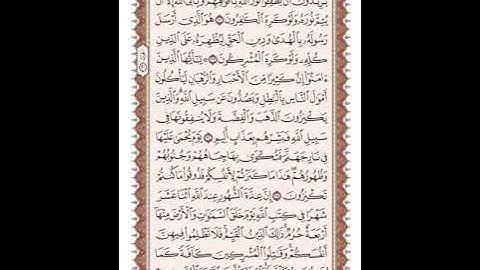 يُرِيدُونَ أَن يُطْفِـُٔوا۟ نُورَ ٱللَّهِ بِأَفْوَٰهِهِمْ وَيَأْبَى ٱللَّهُ إِلَّآ أَن
يُتِمَّ نُورَهُۥ وَلَوْ كَرِهَ ٱلْكَٰفِرُونَ ٣٢ هُوَ ٱلَّذِىٓ أَرْسَلَ
رَسُولَهُۥ بِٱلْهُدَىٰ وَدِينِ ٱلْحَقِّ لِيُظْهِرَهُۥ عَلَى ٱلدِّينِ
كُلِّهِۦ وَلَوْ كَرِهَ ٱلْمُشْرِكُونَ ٣٣ يَٰٓأَيُّهَا ٱلَّذِينَ
ءَامَنُوٓا۟ إِنَّ كَثِيرًا مِّنَ ٱلْأَحْبَارِ وَٱلرُّهْبَانِ لَيَأْكُلُونَ
أَمْوَٰلَ ٱلنَّاسِ بِٱلْبَٰطِلِ وَيَصُدُّونَ عَن سَبِيلِ ٱللَّهِ وَٱلَّذِينَ
يَكْنِزُونَ ٱلذَّهَبَ وَٱلْفِضَّةَ وَلَا يُنفِقُونَهَا فِى
سَبِيلِ ٱللَّهِ فَبَشِّرْهُم بِعَذَابٍ أَلِيمٍ ٣٤ يَوْمَ يُحْمَىٰ عَلَيْهَا
فِى نَارِ جَهَنَّمَ فَتُكْوَىٰ بِهَا جِبَاهُهُمْ وَجُنُوبُهُمْ
وَظُهُورُهُمْ هَٰذَا مَا كَنَزْتُمْ لِأَنفُسِكُمْ فَذُوقُوا۟ مَا كُنتُمْ
تَكْنِزُونَ ٣٥ إِنَّ عِدَّةَ ٱلشُّهُورِ عِندَ ٱللَّهِ ٱثْنَا عَشَرَ
شَهْرًا فِى كِتَٰبِ ٱللَّهِ يَوْمَ خَلَقَ ٱلسَّمَٰوَٰتِ وَٱلْأَرْضَ مِنْهَآ
أَرْبَعَةٌ حُرُمٌ ذَٰلِكَ ٱلدِّينُ ٱلْقَيِّمُ فَلَا تَظْلِمُوا۟ فِيهِنَّ
أَنفُسَكُمْ وَقَٰتِلُوا۟ ٱلْمُشْرِكِينَ كَآفَّةً كَمَا